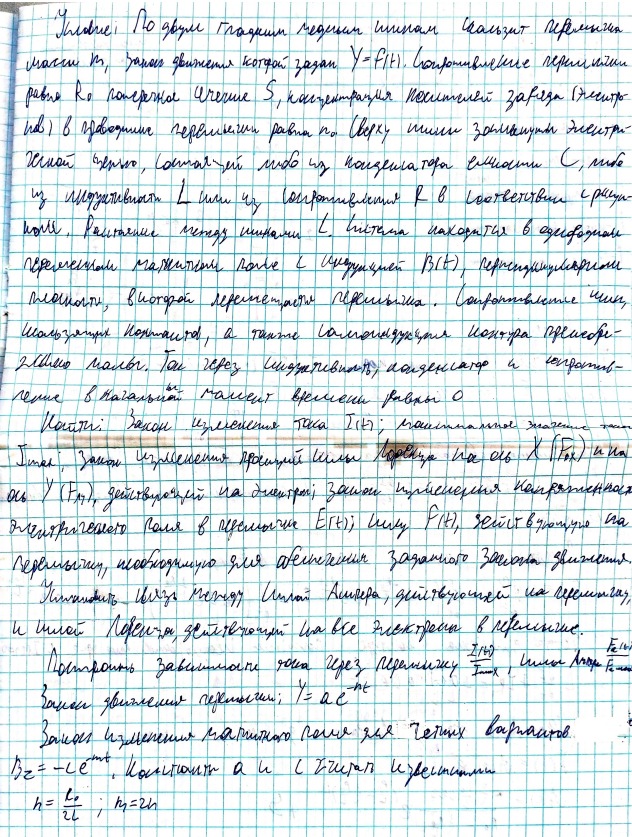 Условие: По двум гладким медным шинам скользит перемычка
массы m, закон движения которой задан Y=f(t). Сопротивление перемычки
равно R₀ поперечное сечение S, концентрация носителей заряда (электро-
нов) в проводнике перемычки равна n₀. Сверху шины замкнуты электри-
ческой цепью, состоящей либо из конденсатора емкости C, либо
из индуктивности L или из сопротивления R в соответствии с рисун-
ком. Расстояние между шинами l. Система находится в однородном
переменном магнитном поле с индукцией B(t), перпендикулярном
плоскости, в которой перемещается перемычка. Сопротивление шин,
скользящих контактов, а также самоиндукция контура пренебре-
жимо малы. Ток через индуктивность, конденсатор и сопротив-
ление в начальный момент времени равны 0
Найти: Закон изменения тока I(t); максимальное значение тока
Imax; закон изменения проекций силы Лоренца на ось X (Fлx) и на
ось Y (Fлy), действующей на электрон; закон изменения напряженности
электрического поля в перемычке E(t); силу F(t), действующую на
перемычку, необходимую для обеспечения заданного закона движения.
Установить связь между силой Ампера, действующей на перемычку,
и силой Лоренца, действующей на все электроны в перемычке.
Построить зависимости тока через перемычку I(t)/Imax, силы Ампера
Закон движения перемычки: Y=ae^-nt
Закон изменения магнитного поля для четных вариантов
Bz=-ce^-mt. Константы a и c считать известными
n=R₀/2L ; n₁=2n